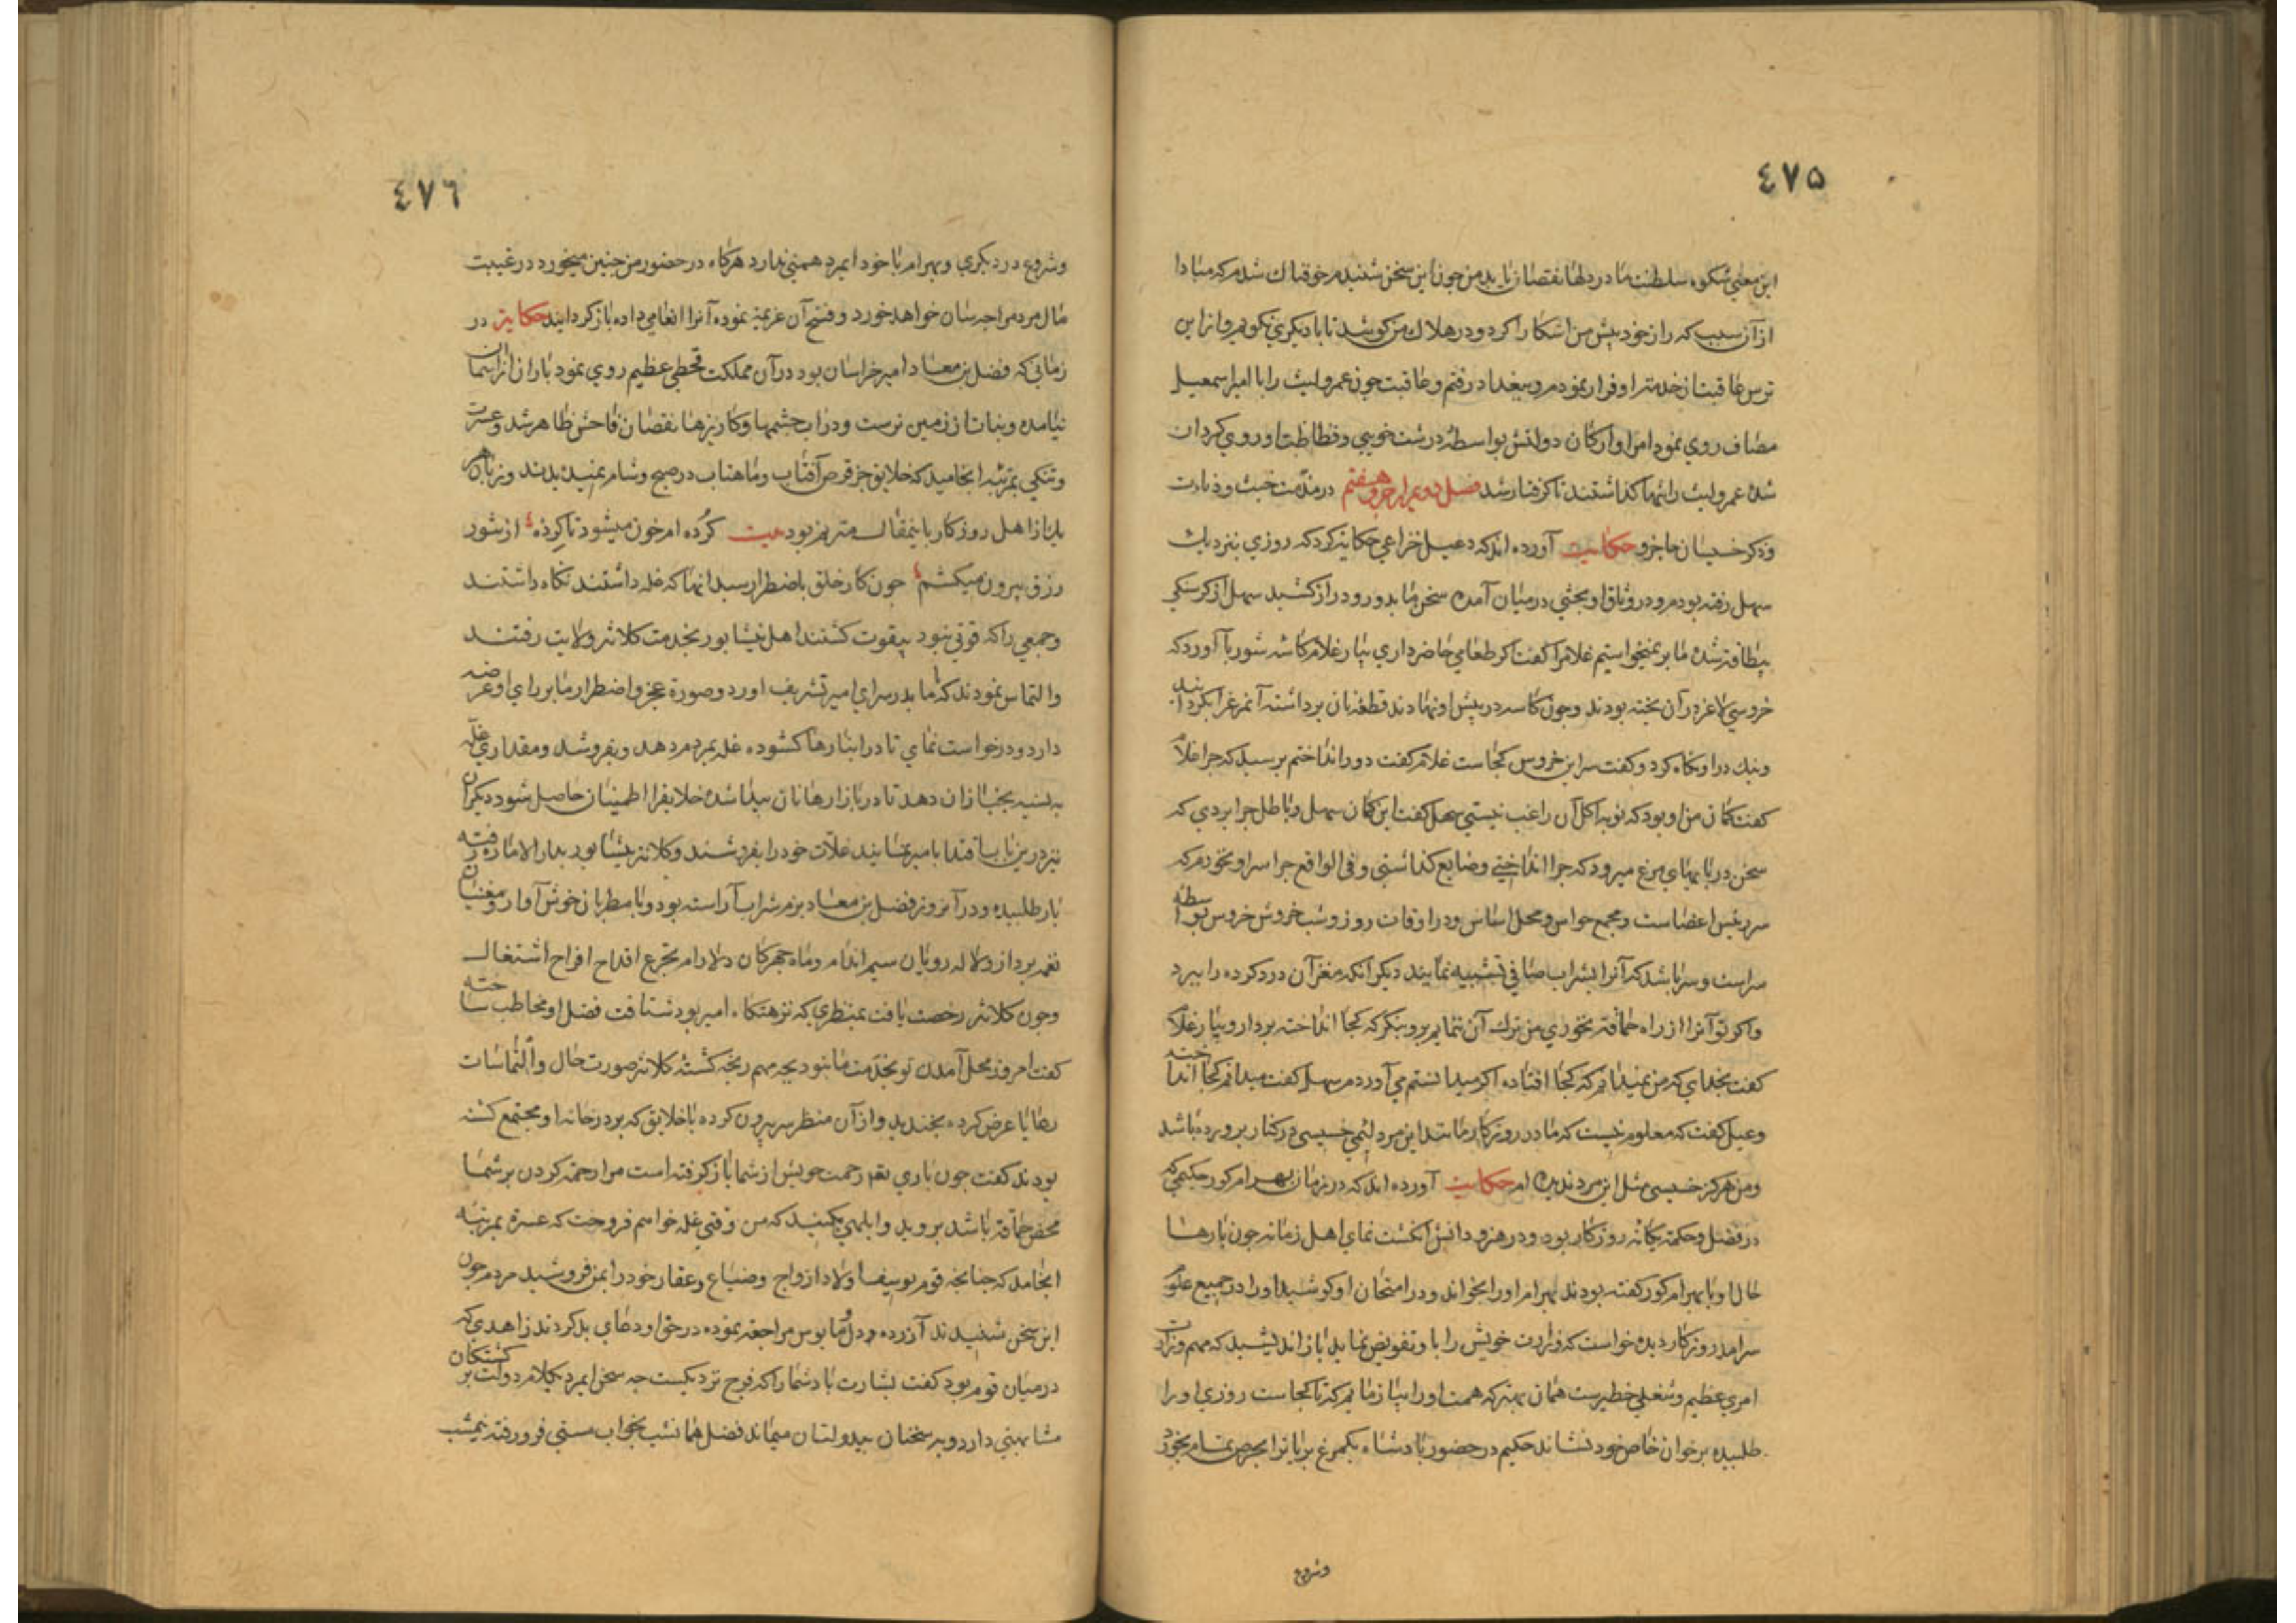 ٤٧٥
این معنی شکوه سلطنت ما در دلها نقصان یابد من چون این سخن شنیدم خوفناک شدم که مبادا
از آن سبب که راز خود پیش من اشکارا کرد و در هلاک من کوشد تا با دیکری نکویم و از این
ترس عاقبت از خدمت او فرار نمودم و ببغداد رفتم و عاقبت چون عمرولیث را با امیر اسمعیل
مصاف روی نمود امرا و ارکان دولتش بواسطه درشت خویی و فظاظت او روی کردان
شده عمرولیث را تنها کذاشتند تا کرفتار شد فصل دویم از جزو هفتم در مذمت خبث و دنائت
و ذکر خسیسان جاجزو حکایت آورده اند که دعبل خزاعی حکایت کرد که روزی بنزدیک
سهل رفته بودم و در وثاق او بحثی در میان آمده سخن ما بدور و دراز کشید سهل از کرسنکی
بیطاقت شده ما بر نمیخواستیم غلام را کفت اکر طعامی حاضر داری بیار غلام کاسه شوربا آورد که
خروسی لاغر در آن پخته بودند و چون کاسه در پیش او نهادند قطعه نان برداشته آنمرغ را بکردانید
و نیک در او نکاه کرد و کفت سر این خروس کجاست غلام کفت دور انداختم پرسید که چرا غلام
کفت کمان من او بود که تو به اکل آن راغب نیستی سهل کفت این کمان سهل و باطل چرا بردی که
سخن در پا بهای مرغ میرود که چرا انداختی و ضایع کذاشتی و فی الواقع چرا سر او نخورم که
سر رئیس اعضاست و مجمع حواس و محل اساس و در اوقات روز و شب خروش خروس بواسطه
سر است و سر باشد که آنرا بشراب صافی تشبیه نمایند دیکر آنکه مغز آن درد کرده را ببرد
و اکر تو آنرا از راه حماقت نخوری من ترک آن ننمایم برو بنکر که کجا انداخته بردار و بیار غلام
کفت بخدای که من نمیدانم که کجا افتاده اکر میدانستم می آوردم سهل کفت میدانم کجا انداخته
دعبل کفت که معلوم نیست که مادر روزکار مانند این مرد لئیمی خسیسی در کنار پرورده باشد
و من هرکز خسیسی مثل این مرد ندیده ام حکایت آورده اند که در زمان بهرام کور حکیمی که
در فضل و حکمت یکانه روزکار بود و در هنر و دانش انکشت نمای اهل زمانه چون بارها
حال او با بهرام کور کفته بودند بهرام او را بخواند و در امتحان او کوشید او را در جمیع علوم
سرامد روزکار دیده خواست که وزارت خویش را با و تفویض نماید باز اندیشید که مهم وزارت
امری عظیم و شغلی خطیرست همان بهتر که همت او را بیازمایم که تا کجاست روزی او را
طلبیده بر خوان خاص خود نشاند حکیم در حضور پادشاه یکمرغ بریان را بحرص تمام بخورد
وشروع
٤٧٦
وشروع در دیکری و بهرام با خود ایمرد همتی ندارد هرکاه در حضور من چنین میخورد در غیبت
مال مردم را چه سان خواهد خورد و فسخ آن عزیمت نموده آنرا انعامی داده باز کردانید حکایت در
زمانی که فضل بن معاد امیر خراسان بود در آن مملکت قحطی عظیم روی نمود باران از آسمان
نیامده و نبات از زمین نرست و در اب چشمها و کاریزها نقصان فاحش ظاهر شد و عسرت
و تنکی بمرتبه انجامید که خلایق جز قرص آفتاب و ماهتاب در صبح و شام نمیدیدند و زبان هر
یک از اهل روزکار باینمقال مترنم بود بیت کرده ام خون میشود تا کرده از شور
رزق بیرون میکشم چون کار خلق باضطرار رسید انها که غله داشتند نکاه داشتند
و جمعی را که قوتی نبود بیقوت کشتند اهل نیشابور بخدمت کلانتر ولایت رفتند
و التماس نمودند که اما بدر سرای امیر تشریف اورد و صورت عجز و اضطرار ما بر رای او عرضه
دارد و درخواست نمای تا در انبارها کشوده غله بمردم دهد و بفروشد و مقداری غله
به نسیه بخبازان دهد تا در بازارها نان پیدا شده خلایق را اطمینان حاصل شود دیکران
نیز درین باب اقتدا بامیر نمایند غلات خود را بفروشند و کلانتر نیشابور بدار الاماره رفته
بار طلبیده و در آنروز فضل بن معاد بزم شراب آراسته بود و با مطربان خوش آواز و مغنیان
نغمه پرداز و لاله رویان سیم اندام و ماه چهرکان دلارام بتجرع اقداح افراح اشتغال
و چون کلانتر رخصت یافت بمنظری که نزهتکاه امیر بود شتافت فضل او مخاطب ساخته
کفت امروز محل آمدن تو بخدمت ما نبود بچه مهم رنجه کشته کلانتر صورت حال و التماسات
رعایا عرض کرده بخندید و از آن منظر سر بیرون کرده با خلایق که بر در خانه او مجتمع کشته
بودند کفت چون باری تعم رحمت خویش از شما باز کرفته است مرا رحمت کردن بر شما
محض حماقت باشد بروید و ابلهی مکنید که من وقتی غله خواهم فروخت که عسرت بمرتبه
انجامد که چنانچه قوم یوسف اولاد ازواج و ضیاع و عقار خود را بمن فروشید مردم چون
این سخن شنیدند آزرده دل و مایوس مراجعت نموده در حق او دعای بد کردند زاهدی که
در میان قوم بود کفت بشارت باد شما را که فرج نزدیکست چه سخن ایمرد بکلام دولت برکشتکان
مشابهتی دارد و به سخنان بیدولتان میماند فضل همانشب بخواب مستی فرو رفته نیمشب